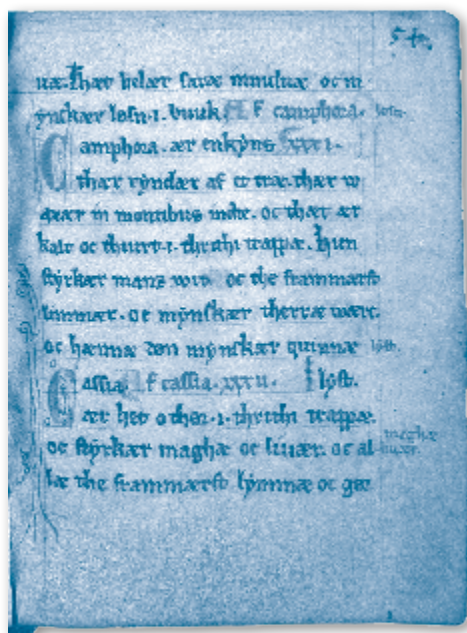 uæ. thær helær saræ oc m
ynskær løsn .i. buuk. Af camphora. løsn.
Camphora. ær enkyns xxxi.
thær ryndær af et træ. thær w
æxær in montibus indie. oc thær ær
kalt oc thiurt .i. thrithi trappæ. Hun
styrkær mans wit oc the frammærst
limmær. oc mynskær therræ wærc.
oc hænnæ mynskær quinnæ løst.
Cassia Af cassia. xxxii. løst.
ær het oc thør .i. thrithi trappæ.
oc styrkær maghæ oc liuær. oc al maghæ liuær.
læ the frammærst lymmæ oc gør